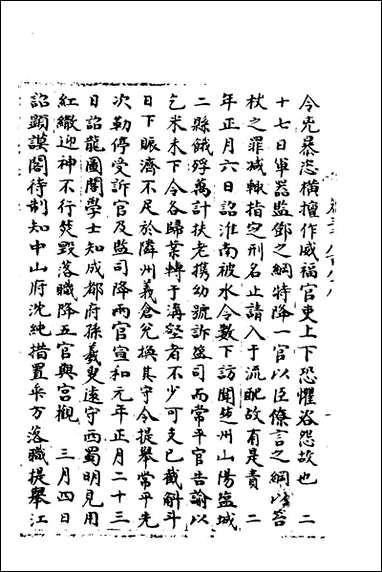 令兇暴恣横擅作威福官吏上下恐懼咨怨故也　二
十七日軍器監鄧之綱特降一官以臣僚言之綱以笞
杖之罪减輒指定刑名止請入于流配故有是責　二
年正月六日詔淮南被水令數下訪聞楚州山陽鹽城
二縣餓殍萬計扶老携幼號訴監司而常平官告諭以
乞米未下令各歸業轉于溝壑者不少可支已截斛斗
日下賑濟不足於隣州義倉兌換其守令提舉常平先
次勒停受訴官及監司降兩官宣和元年正月二十三
日詔龍圖閣學士知成都府孫羲叟遠守西蜀明見用
紅繖迎神不行焚毁落職降五官與宮觀　三月四日
詔顯謨閣待制知中山府沈純措置乖方落職提舉江